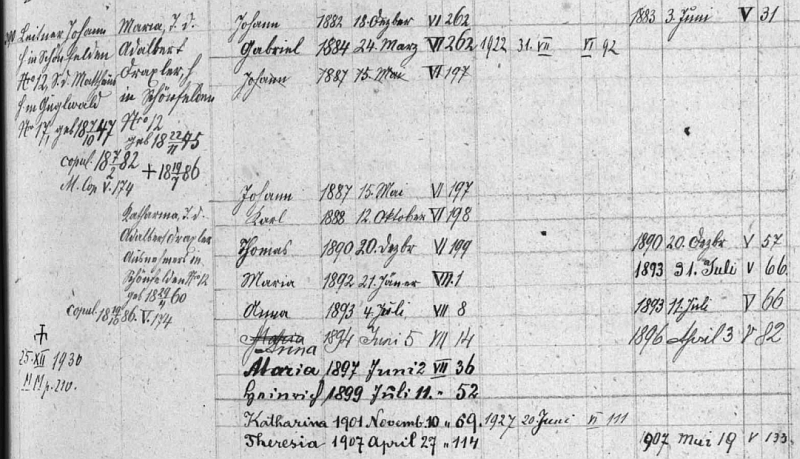 Leitner Johann Maria, T. d. Johann 1882 18. Dezber VI 262 1883 3. Juni V 31
in Schönfelden Adalbert Gabriel 1884 24. März VI 262 1922 31. VII VI 92
No 12, S. d. Mathäus Draxler, Johann 1887 15. Mai VI 197
in Guglwald in Schönfelden
No 17, geb 18 7/10 47 No 12
geb 18 22/11 45
copul. 18 7/2 82 + 18 19/7 86
M. Cop V. 174
Johann 1887 15. Mai VI 197
Katharina, T. d. Karl 1888 12. Oktober VI 198
Adalbert Draxler Thomas 1890 20. Dezbr VI 199 1890 20. Dezbr V 57
Schönfelden No 12 Maria 1892 21. Jäner VII. 1 1893 31. Juli V 66.
geb 18 60 Anna 1893 4. Juli VII 8 1893 11. Juli V 66
copul. 18 86. V. 174
Maria
Anna 1894 Juni 5 VII 14 1896 April 3 V 82
+
25. XII 1930 Maria 1897 Juni 2 VII 36
p. 210. Heinrich 1899 Juli 11. " 52
Katharina 1901 Novemb. 10 " 69. 1927 20. Juni VI 111
Theresia 1907 April 27 " 114 1907 Mai 19 V 133.